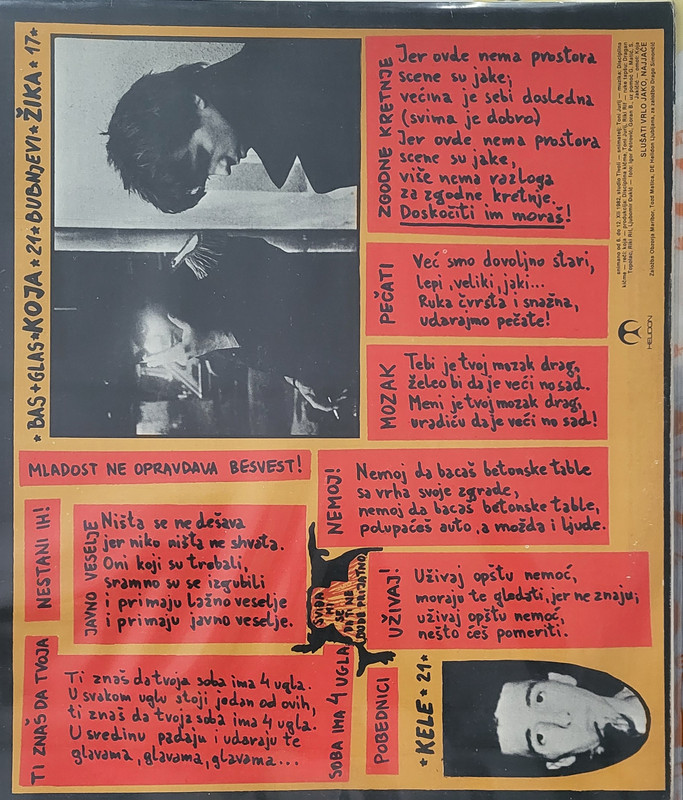 *BAS+GLAS*KOJA*21*BUBNJEVI*ŽIKA*17*
ZGODNE KRETNJE
Jer ovde nema prostora
scene su jake;
većina je sebi dosledna
(svima je dobro)
Jer ovde nema prostora
scene su jake,
više nema razloga
za zgodne kretnje.
Doskočiti im moraš!
PEČATI
Već smo dovoljno stari,
lepi, veliki, jaki...
Ruka čvrsta i snažna,
udarajmo pečate!
MOZAK
Tebi je tvoj mozak drag,
želeo bi da je veći no sad.
Meni je tvoj mozak drag,
uradiću da je veći no sad!
MLADOST NE OPRAVDAVA BESVEST!
NEMOJ!
Nemoj da bacaš betonske table
sa vrha svoje zgrade,
nemoj da bacaš betonske table,
polupaćeš auto, a možda i ljude.
NESTANI IH!
JAVNO VESELJE
Ništa se ne dešava
jer niko ništa ne shvata.
Oni koji su trebali,
sramno su se izgubili
i primaju lažno veselje
i primaju javno veselje.
UŽIVAJ!
Uživaj opštu nemoć,
moraju te gledati, jer ne znaju;
uživaj opštu nemoć,
nešto ćeš pomeriti.
TI ZNAŠ DA TVOJA
SOBA IMA 4 UGLA
Ti znaš da tvoja soba ima 4 ugla.
U svakom uglu stoji jedan od ovih,
ti znaš da tvoja soba ima 4 ugla.
U sredinu padaju i udaraju te
glavama, glavama, glavama...
POBEDNICI
*KELE*21*
SLUŠATI VRLO JAKO, NAJJAČE
HELIDON